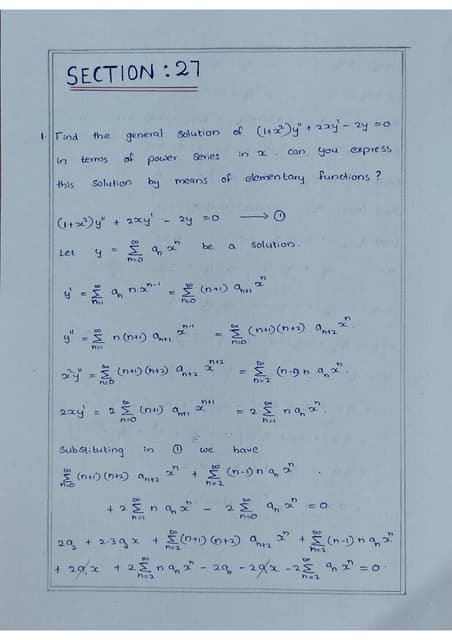 SECTION : 27
1. Find the general solution of (1+x²)y" + 2xy' - 2y = 0
in terms of power series in x. can you express
this solution by means of elementary functions ?
(1+x²)y" + 2xy' - 2y = 0 → ①
Let y = ∞Σn=0 aₙ xⁿ be a solution.
y' = ∞Σn=1 aₙ n·xⁿ⁻¹ = ∞Σn=0 (n+1) aₙ₊₁ xⁿ
y" = ∞Σn=1 n(n+1) aₙ₊₁ xⁿ⁻¹ = ∞Σn=0 (n+1)(n+2) aₙ₊₂ xⁿ.
x²y" = ∞Σn=0 (n+1)(n+2) aₙ₊₂ xⁿ⁺² = ∞Σn=2 (n-1) n aₙ xⁿ.
2xy' = 2 ∞Σn=0 (n+1) aₙ₊₁ xⁿ⁺¹ = 2 ∞Σn=1 n aₙ xⁿ.
Substituting in ① we have
∞Σn=0 (n+1)(n+2) aₙ₊₂ xⁿ + ∞Σn=2 (n-1) n aₙ xⁿ
+ 2 ∞Σn=1 n aₙ xⁿ - 2 ∞Σn=0 aₙ xⁿ = 0
2a₂ + 2·3a₃ x + ∞Σn=2 (n+1)(n+2) aₙ₊₂ xⁿ + ∞Σn=2 (n-1) n aₙ xⁿ
+ 2a₁x + 2 ∞Σn=2 n aₙ xⁿ - 2a₀ - 2a₁x - 2 ∞Σn=2 aₙ xⁿ = 0.